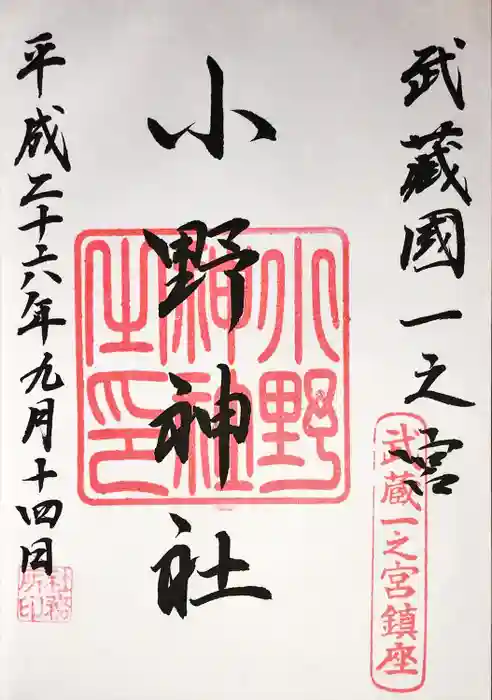 武藏國一之宮
武蔵一之宮鎮座
小野神社
小野
神社
之印
平成二十六年九月十四日
社務
所印